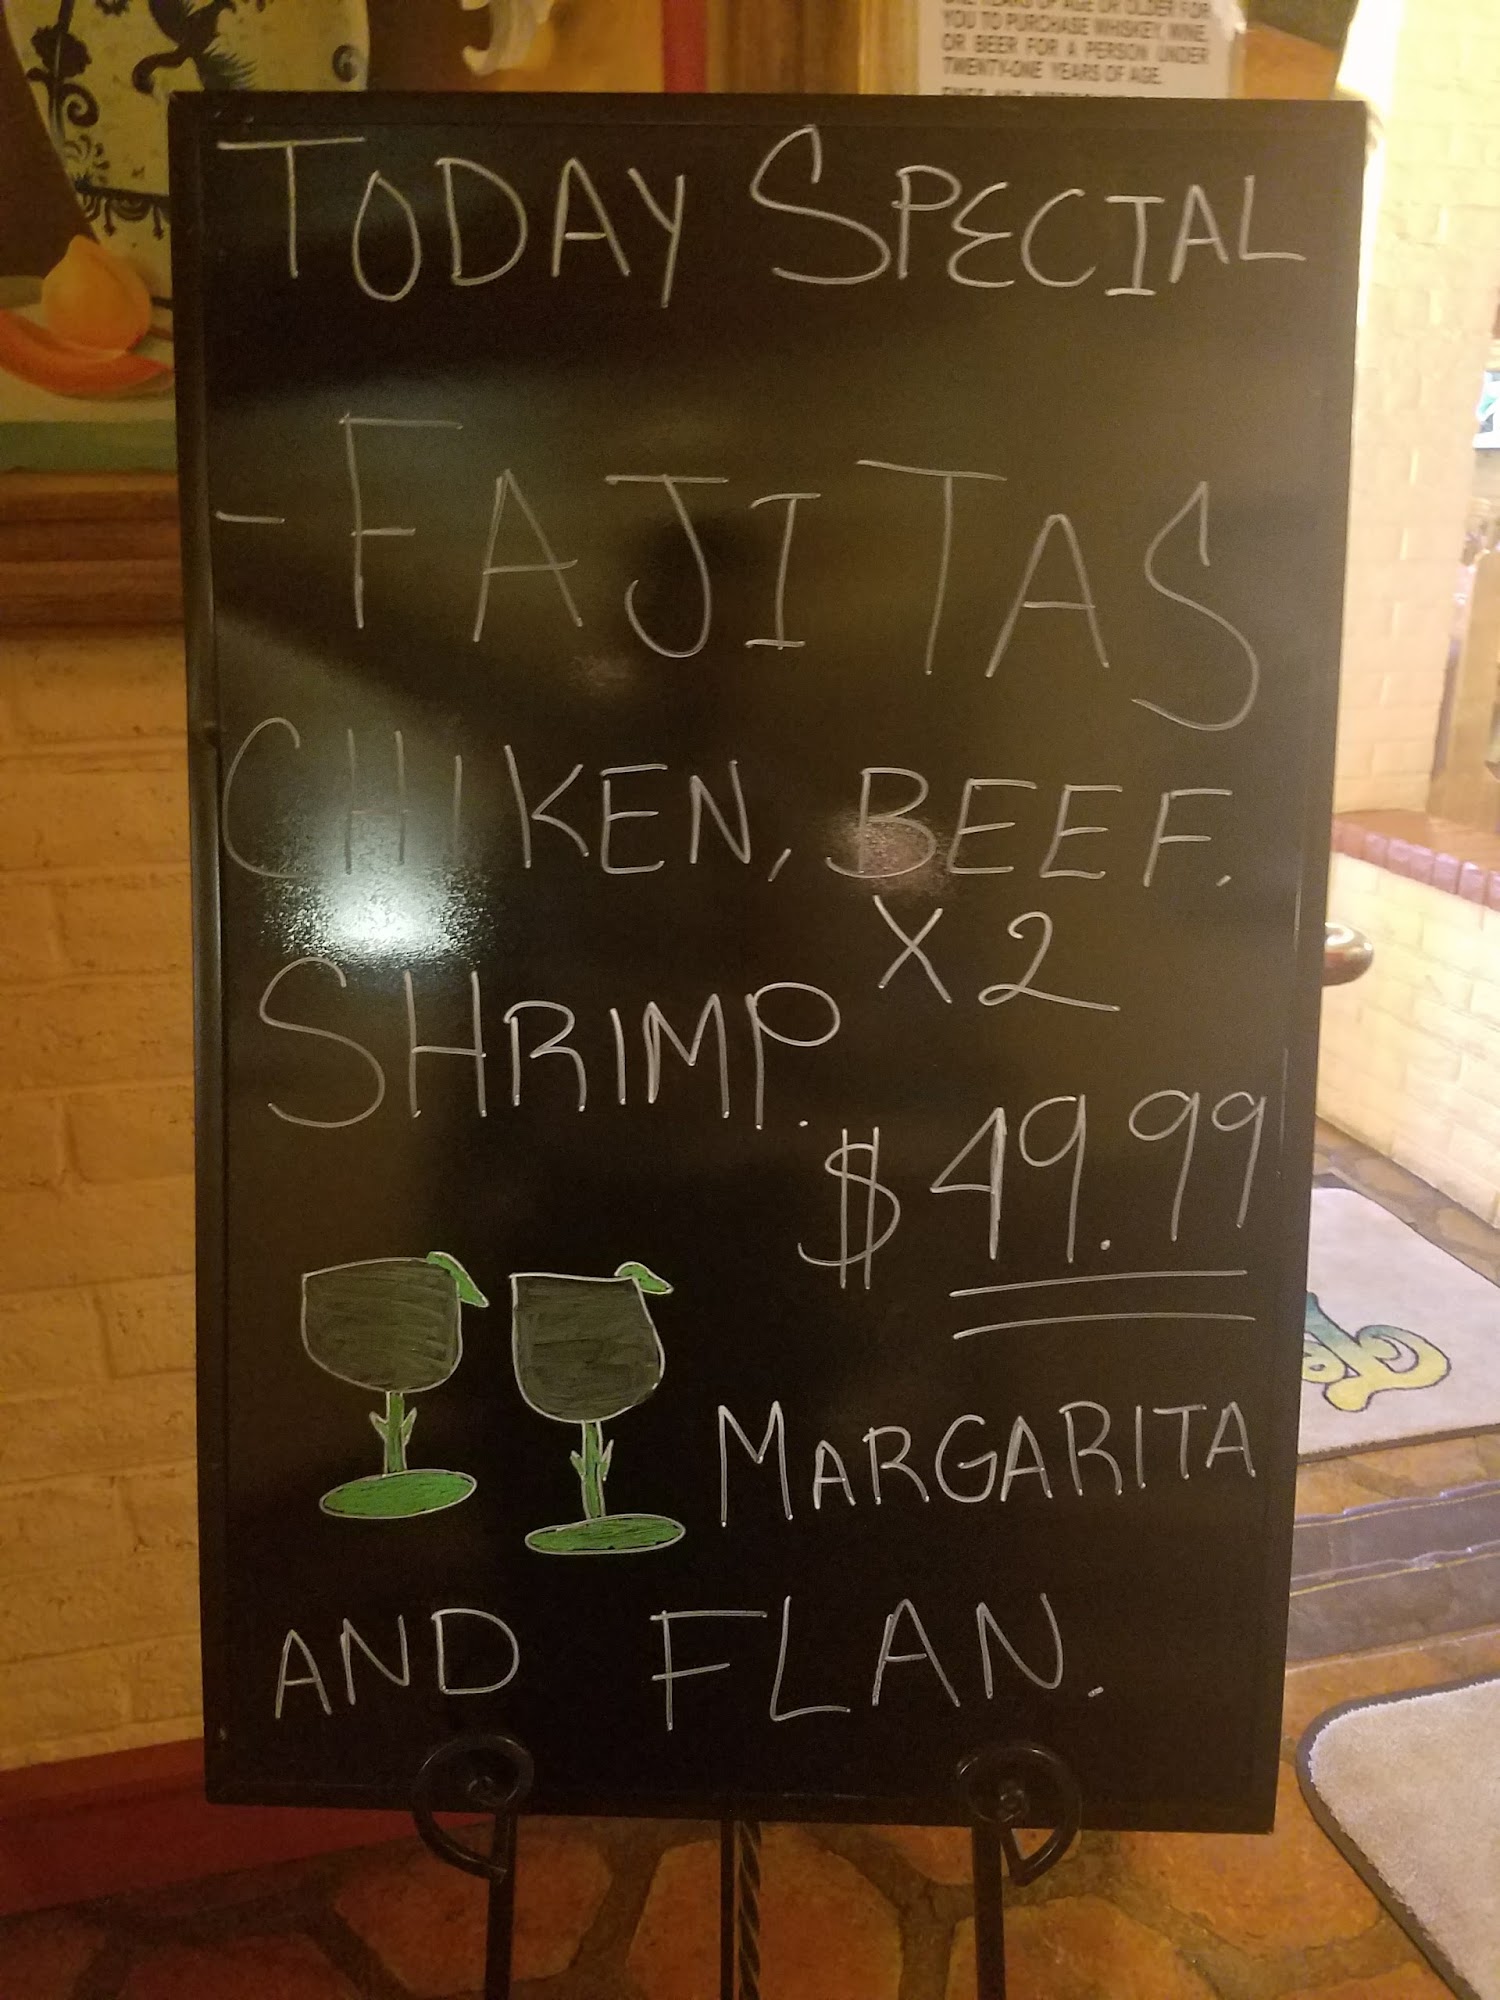 ONE YEARS OF AGE OR OLDER FOR
YOU TO PURCHASE WHISKEY, WINE,
OR BEER FOR A PERSON UNDER
TWENTY-ONE YEARS OF AGE.
TODAY SPECIAL
- FAJITAS
CHIKEN, BEEF.
X2
SHRIMP.
$49.99
MARGARITA
AND FLAN.